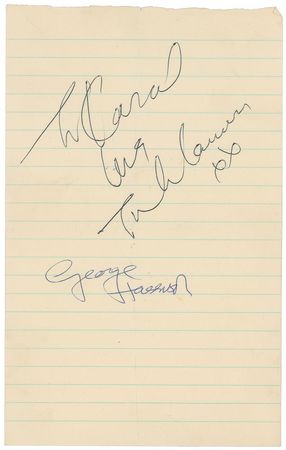 To Carol
love
John Lennon
xx
George
Harrison